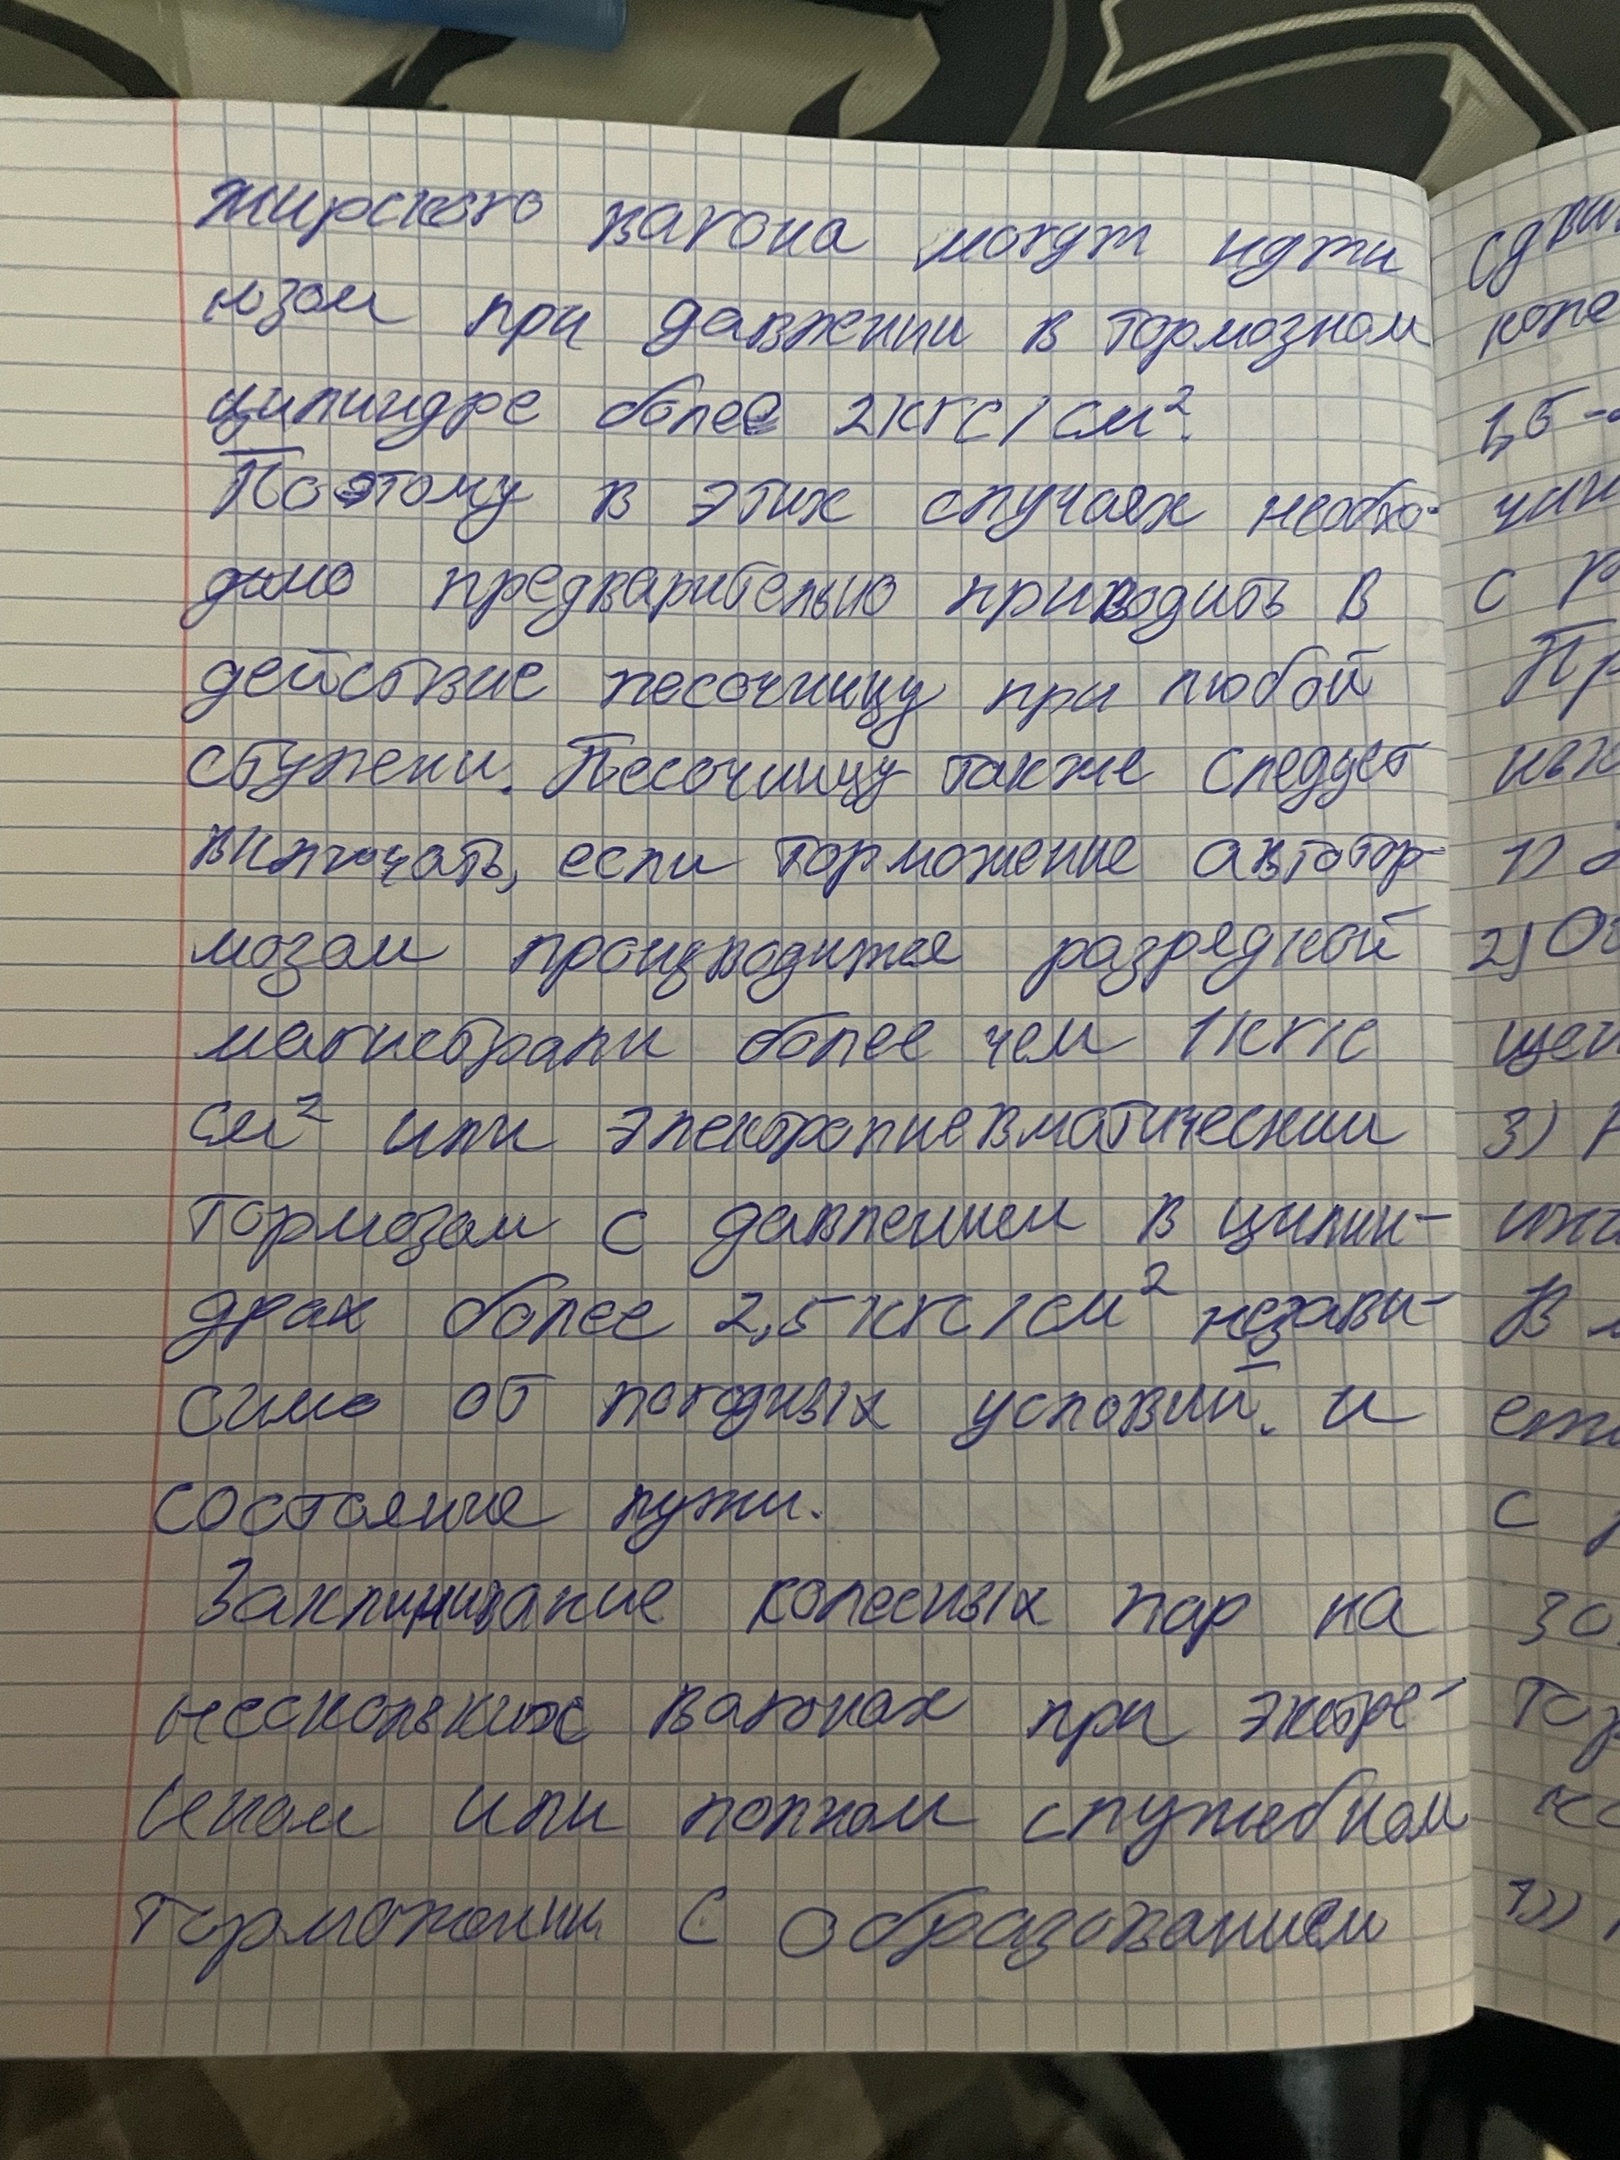 жирского вагона могут идти
юзом при давлении в тормозном
цилиндре более 2 кгс/см².
Поэтому в этих случаях необхо-
димо предварительно приводить в
действие песочницу при любой
ступени. Песочницу также следует
включать, если торможение автотор-
мозом производится разрядкой
магистрали более чем 1 кгс
см² или электропневматическим
тормозом с давлением в цилин-
драх более 2,5 кгс/см² незави-
симо от погодных условий. и
состояния пути.
Заклинивание колесных пар на
нескольких вагонах при экстре-
нном или полном служебном
торможении с образованием
сдви
коле
1,5 -
цил
с р
Пр
ных
1)
2) Оч
щей
3)
В
с
Тор